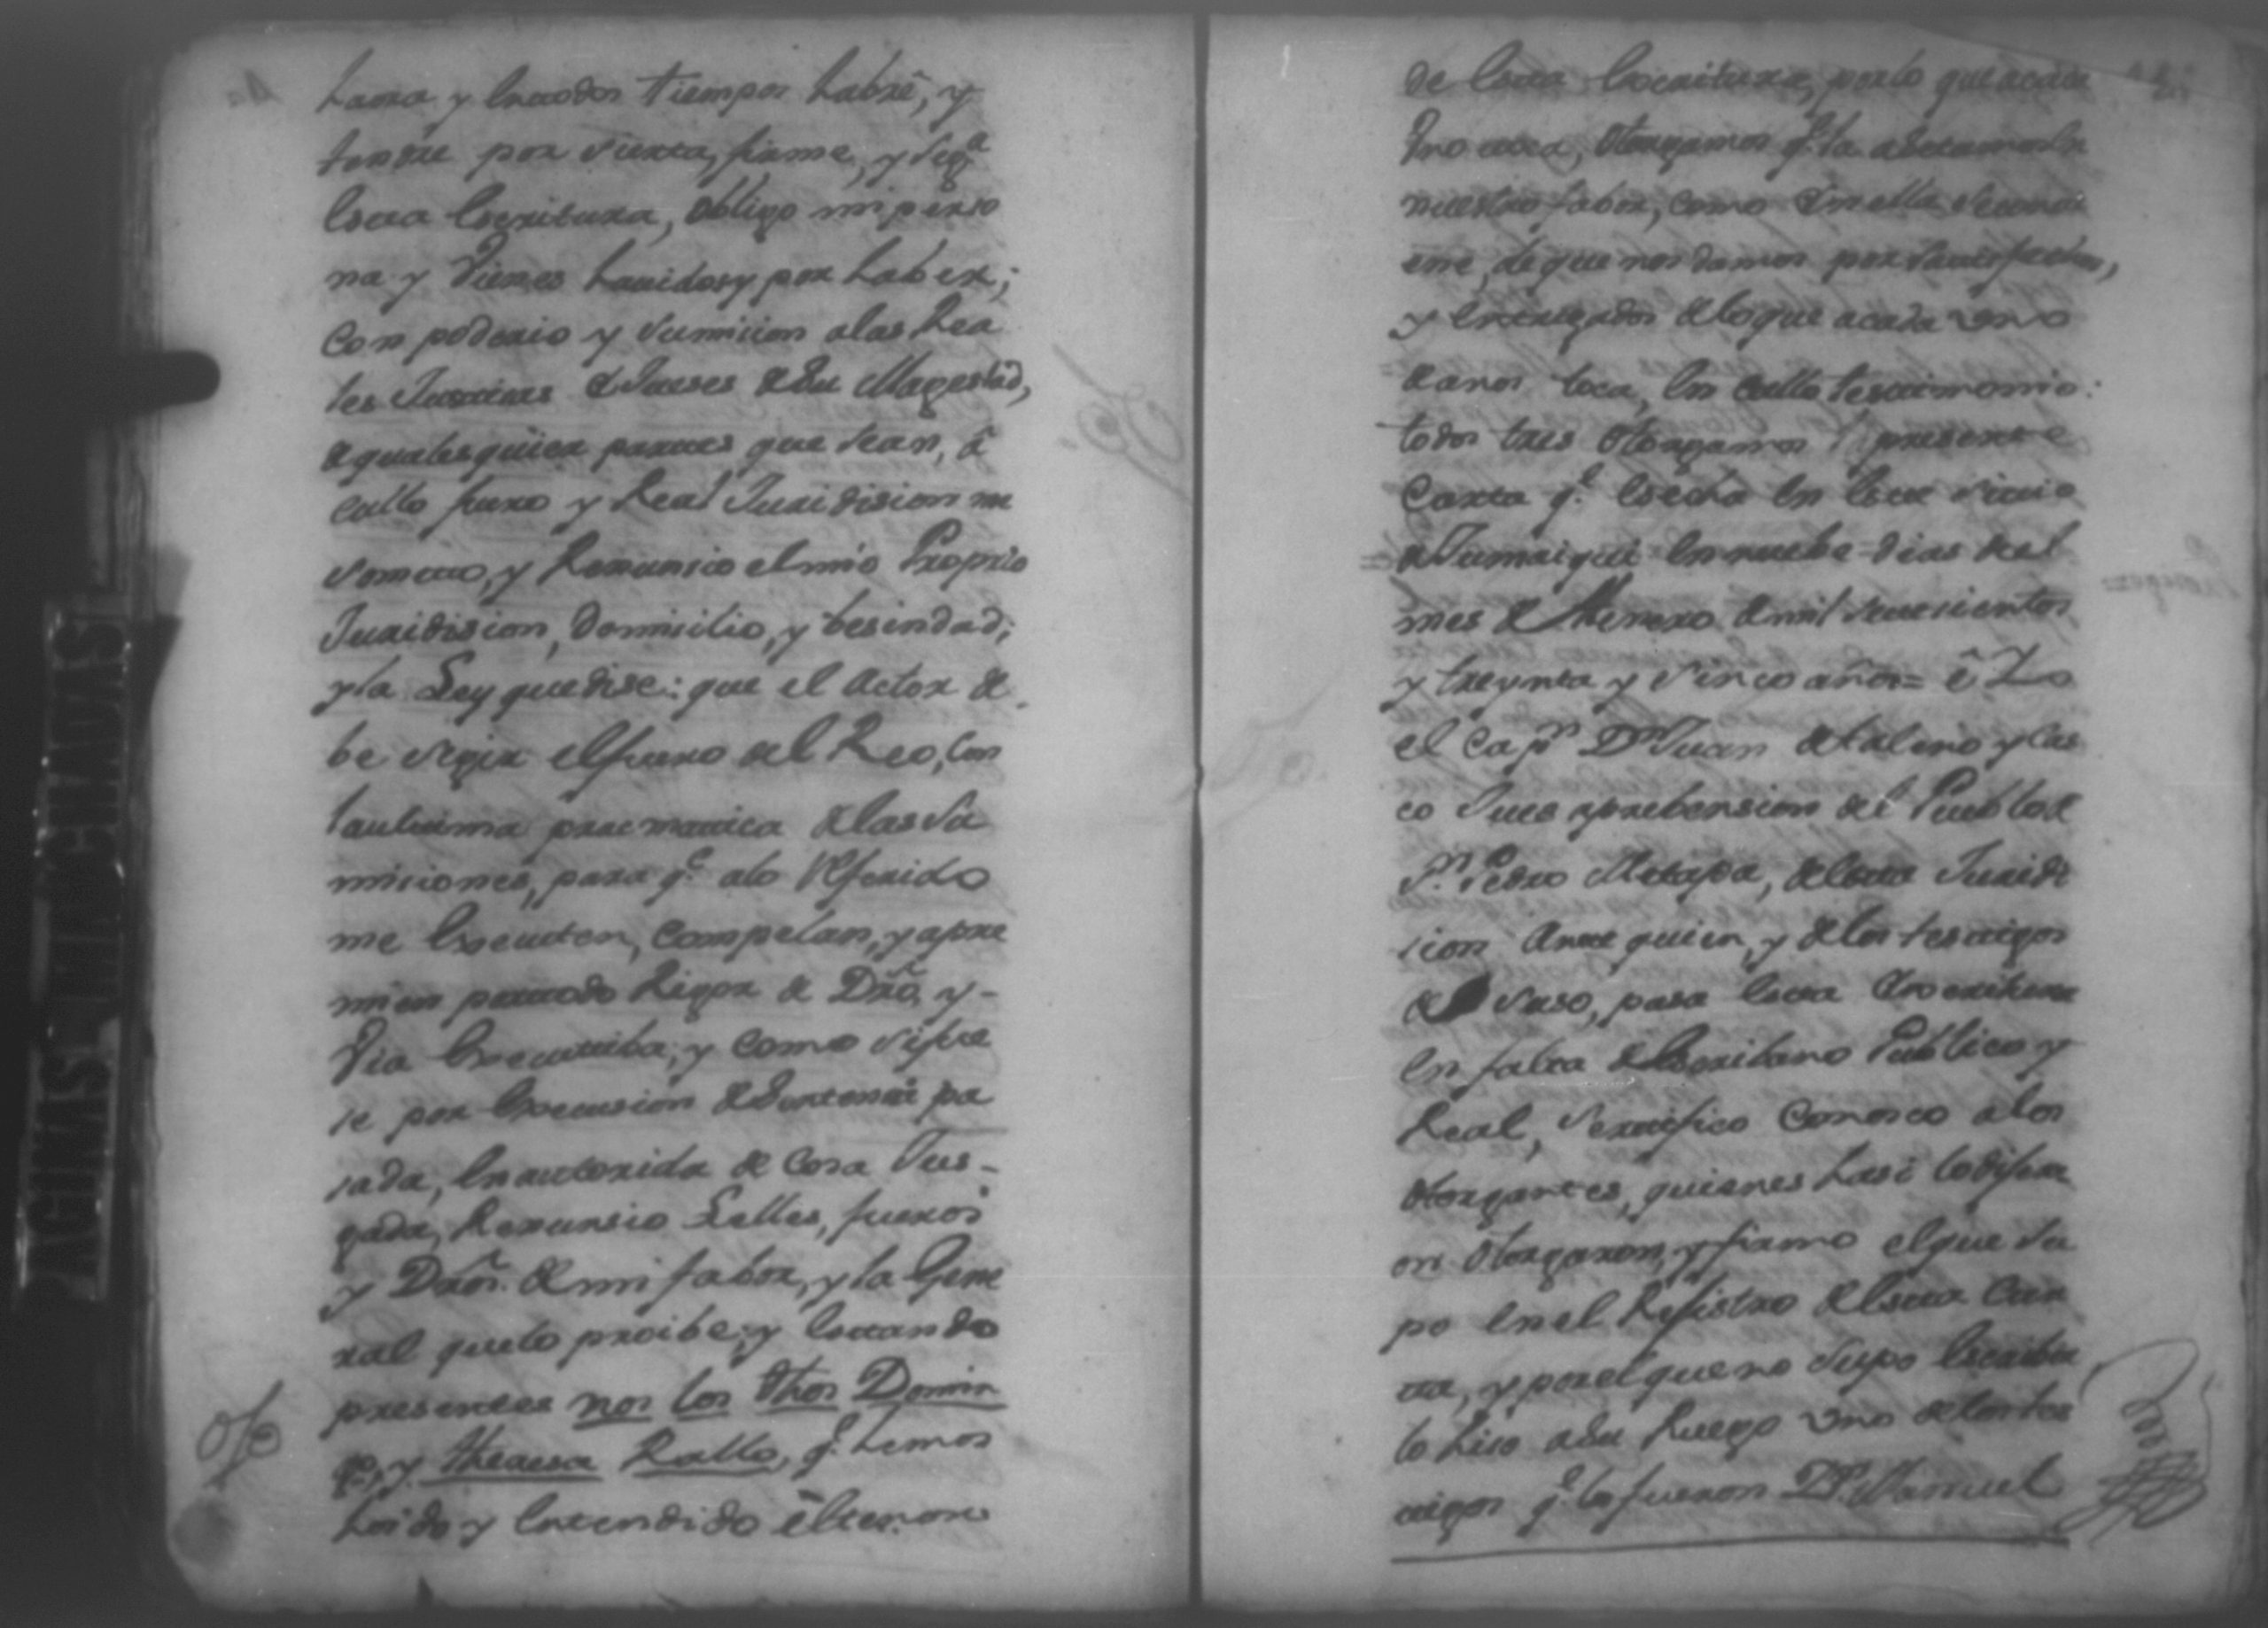 haora y en todos tiempos habrè, y
tendre por sierta, firme, y seg.ª
esta escritura, obligo mi perso
na y Vienes havidos y por haber;
con poderio y sumision a las Rea
les Justicias & Jueses de Su Magestad,
de qualesquiera partes que sean, â
cullo fuero y Real Juridision me
someto, y Renunsio el mio Proprio
Juridision, Domisilio, y besindad;
y la Ley que dise: que el Actor de
be segir el fuero del Reo, con
la ultima pracmatica de las Su
misiones, para q.e a lo Referido
me executen, compelan, y apre
mien por todo Rigor de Dro, y -
Via executiba, y como si fue
se por execusion de Sentensia pa
sada, en autorida de Cosa Jus-
gada, Renunsio Lelles, fueros
y Dros. de mi fabor, y la Gene
ral que lo proibe; y estando
presentes nos los dhos Domin
go, y theresa Rallo, q.e hemos
hoido y entendido êl tenor
de esta escritura, por lo que a cada
Uno toca, Otorgamos q.e la asetamos en
nuestro fabor, como en ella se conti
ene, de que nos damos por satisfechos,
y entregados de lo que a cada uno
de a nos toca, en cullo testimonio:
todos tres Otorgamos presente
Carta q.e es echa en este sitio
de Jumaiqui en nuebe dias del
mes de Henero de mil setesientos
y treynta y sinco años = ê Yo
el Cap.n D.n Juan de
co Jues aprebension del Pueblo de
S.n Pedro Metapa, de esta Juridi
sion Ante quien, y de los testigos
de suso, pasa esta escritura
en falta de escribano Publico y
Real, sertifico Conosco a los
Otorgantes, quienes hasi lo dijer
on Otorgaron, y firmo el que su
po en el Rejistro de esta Car
ta, y por el que no supo escribir
lo hiso a su Ruego uno de los tes
tigos q.e lo fueron D.n Manuel